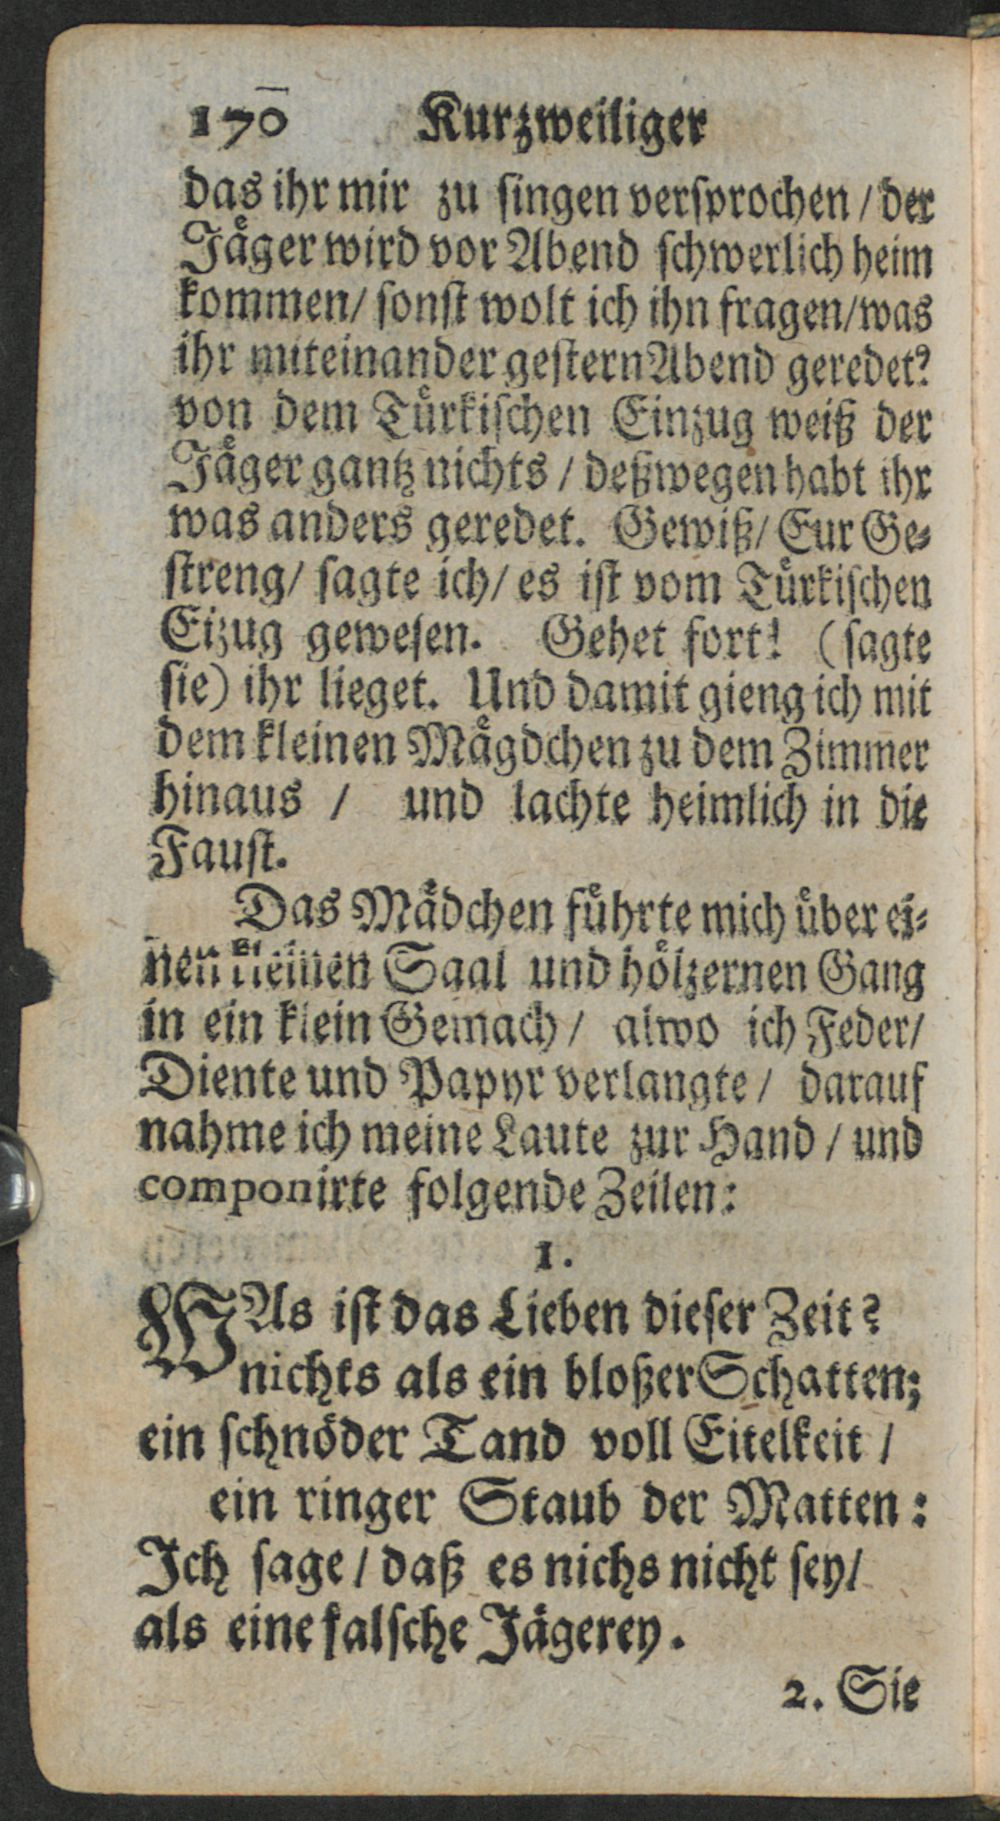 170 Kurzweiliger
das ihr mir zu singen versprochen / der
Jäger wird vor Abend schwerlich heim
kommen/ sonst wolt ich ihn fragen/was
ihr miteinander gestern Abend geredet?
von dem Türkischen Einzug weiß der
Jäger gantz nichts / deßwegen habt ihr
was anders geredet. Gewiß/ Eur Ge-
streng/ sagte ich/ es ist vom Türkischen
Eizug gewesen. Gehet fort! (sagte
sie) ihr lieget. Und damit gieng ich mit
dem kleinen Mägdchen zu dem Zimmer
hinaus / und lachte heimlich in die
Faust.
Das Mädchen führte mich über ei-
nen kleinen Saal und hölzernen Gang
in ein klein Gemach / alwo ich Feder/
Diente und Papyr verlangte / darauf
nahme ich meine Laute zur Hand / und
componirte folgende Zeilen:
1.
WAs ist das Lieben dieser Zeit?
nichts als ein bloßer Schatten;
ein schnöder Tand voll Eitelkeit /
ein ringer Staub der Matten:
Ich sage / daß es nichs nicht sey/
als eine falsche Jägerey.
2. Sie